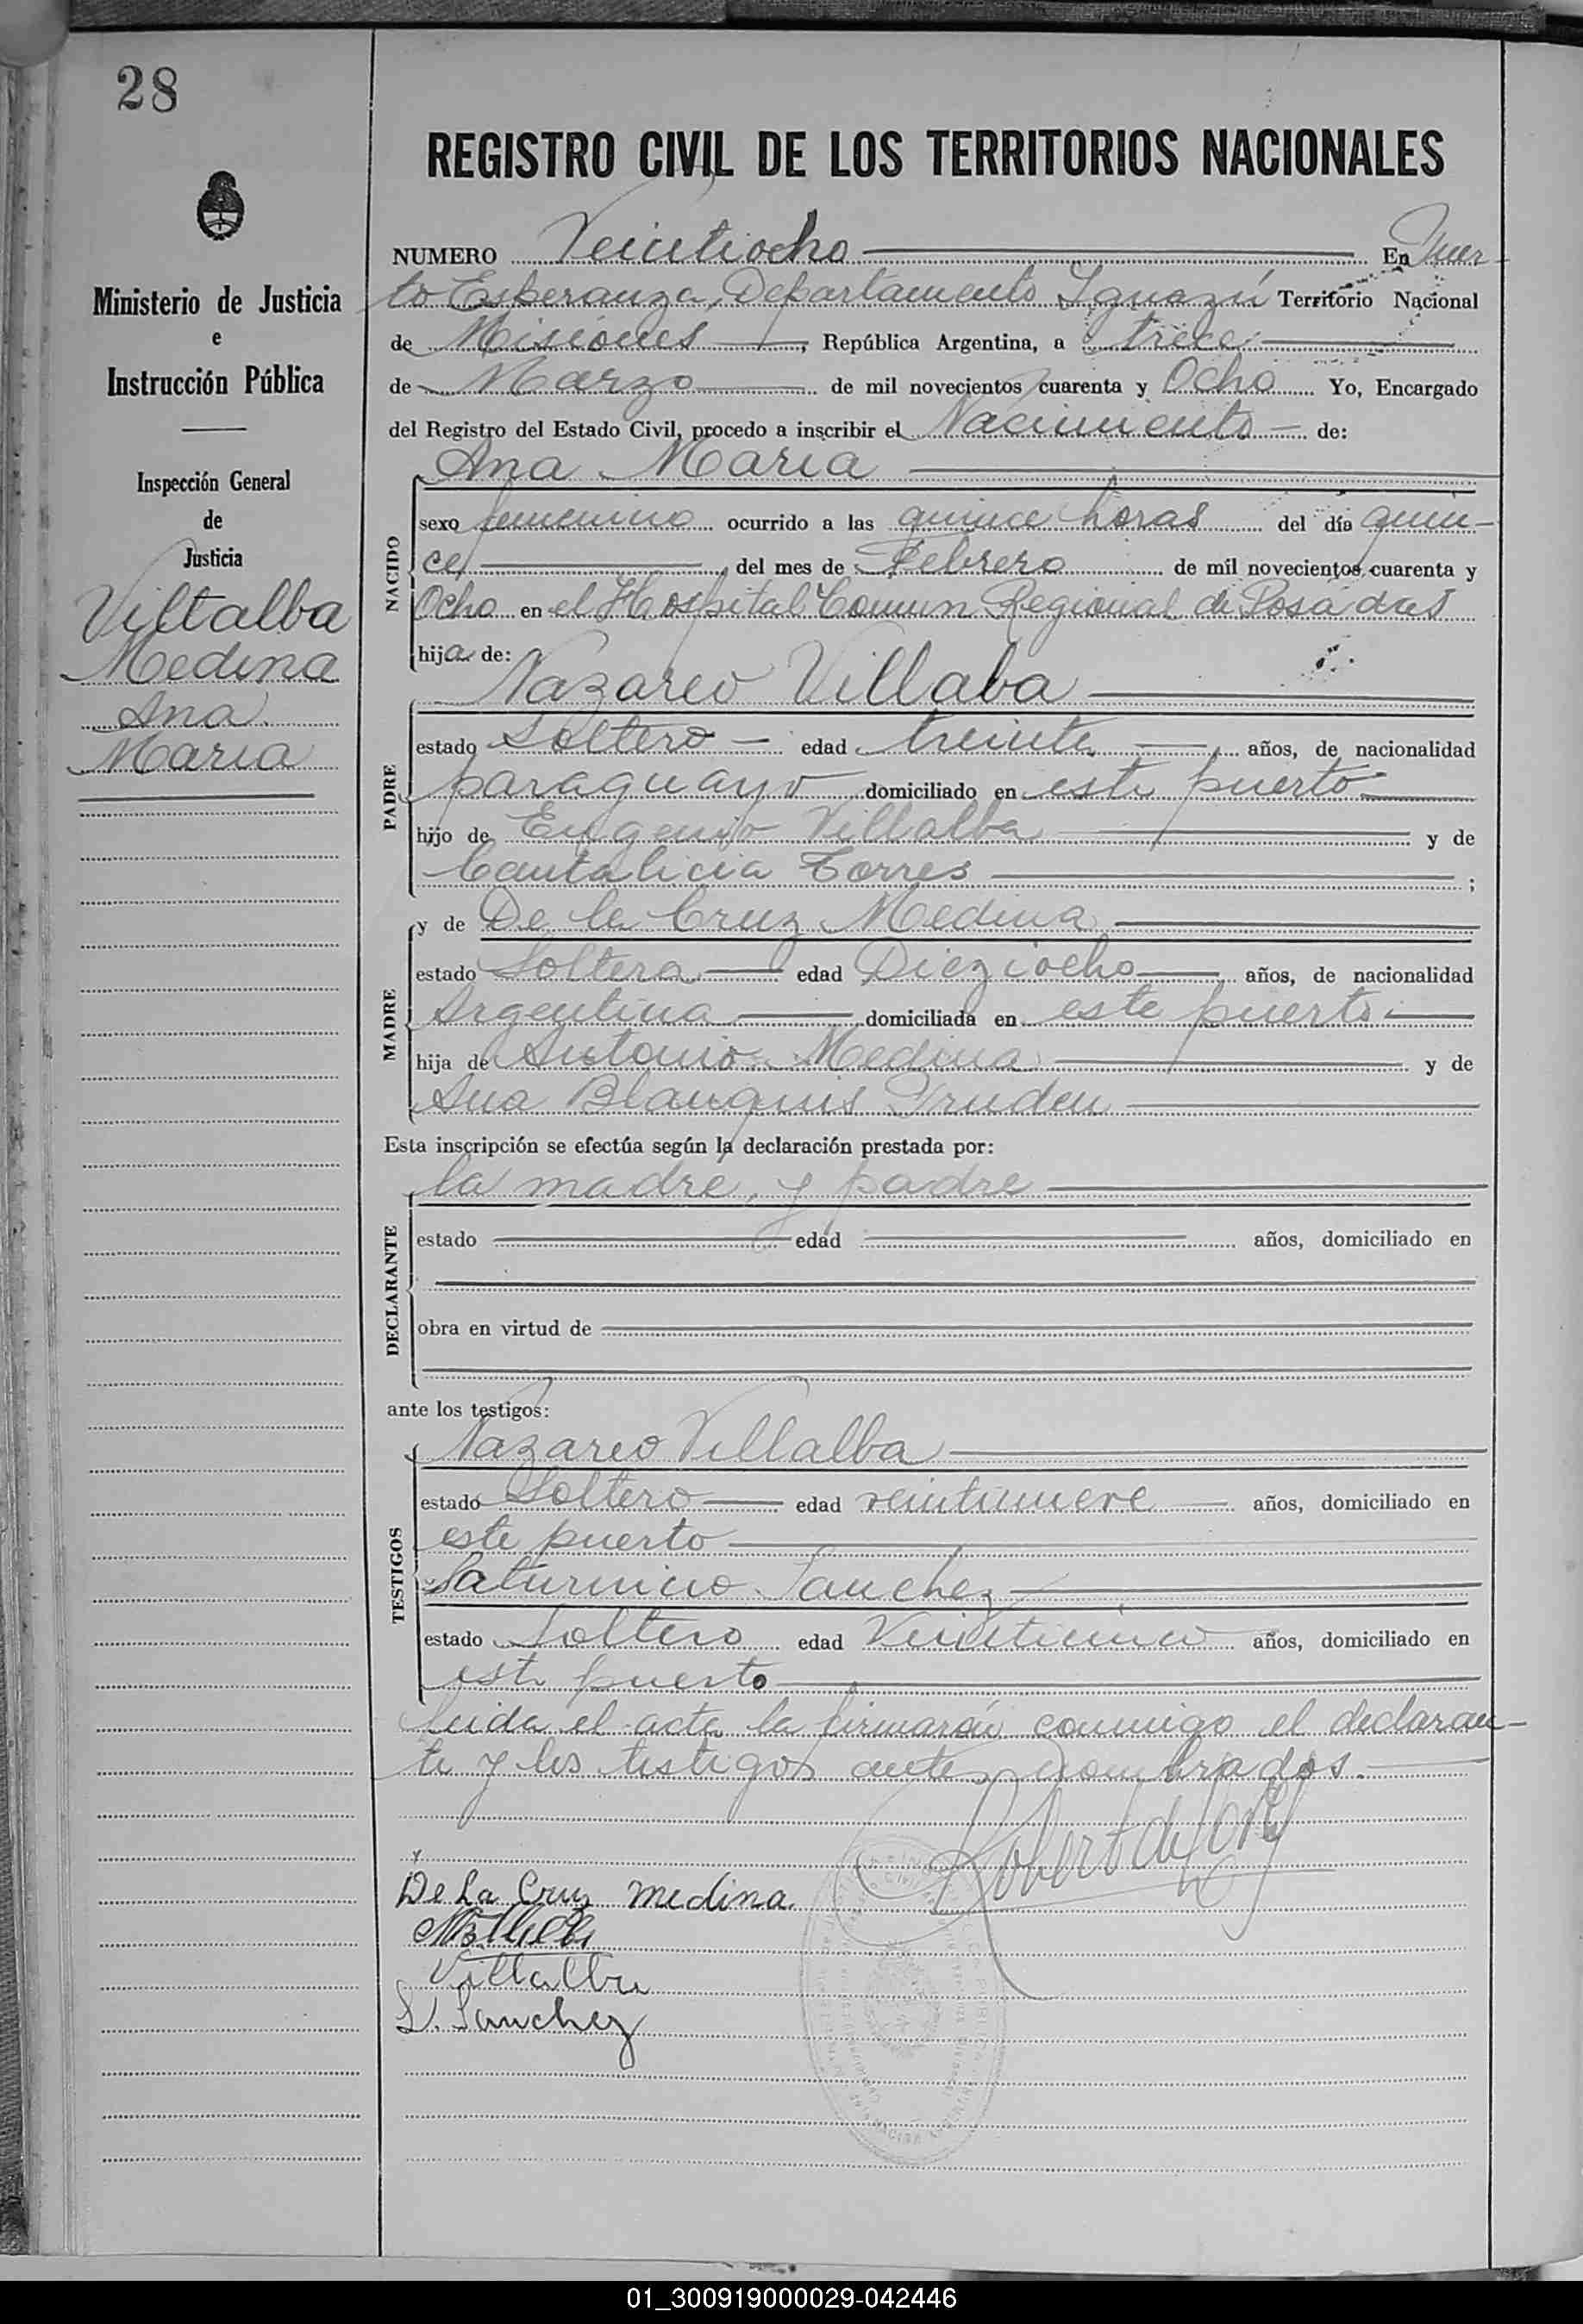 28
Ministerio de Justicia
e
Instrucción Pública
Inspección General
de
Justicia
Villalba
Medina
Ana
Maria
REGISTRO CIVIL DE LOS TERRITORIOS NACIONALES
NUMERO Veintiocho En Puer-
to Esperanza, Departamento Iguazú Territorio Nacional
de Misiones, República Argentina, a trece
de Marzo de mil novecientos cuarenta y Ocho Yo, Encargado
del Registro del Estado Civil, procedo a inscribir el Nacimiento de:
Ana Maria
NACIDO
sexo femenino ocurrido a las quince horas del día quin-
ce, del mes de Febrero de mil novecientos cuarenta y
Ocho en el Hospital Comun Regional de Posadas
hija de:
Nazareo Villaba
PADRE
estado Soltero edad treinta, años, de nacionalidad
paraguayo domiciliado en este puerto
hijo de Eugenio Villalba y de
Cantalicia Torres ;
MADRE
y de De la Cruz Medina
estado Soltera edad Dieziocho años, de nacionalidad
Argentina domiciliada en este puerto
hija de Antonio Medina y de
Ana Blanquis Pruden
Esta inscripción se efectúa según la declaración prestada por:
DECLARANTE
la madre, y padre
estado edad años, domiciliado en
obra en virtud de
ante los testigos:
TESTIGOS
Nazareo Villalba
estado Soltero edad veintinueve años, domiciliado en
este puerto
Saturnino Sanchez
estado Soltero edad Veinticinco años, domiciliado en
este puerto
Leida el acta la firmarón conmigo el declaran-
te y los testigos antes nombrados.
De La Cruz medina
Villalba
S. Sanchez
01_300919000029-042446